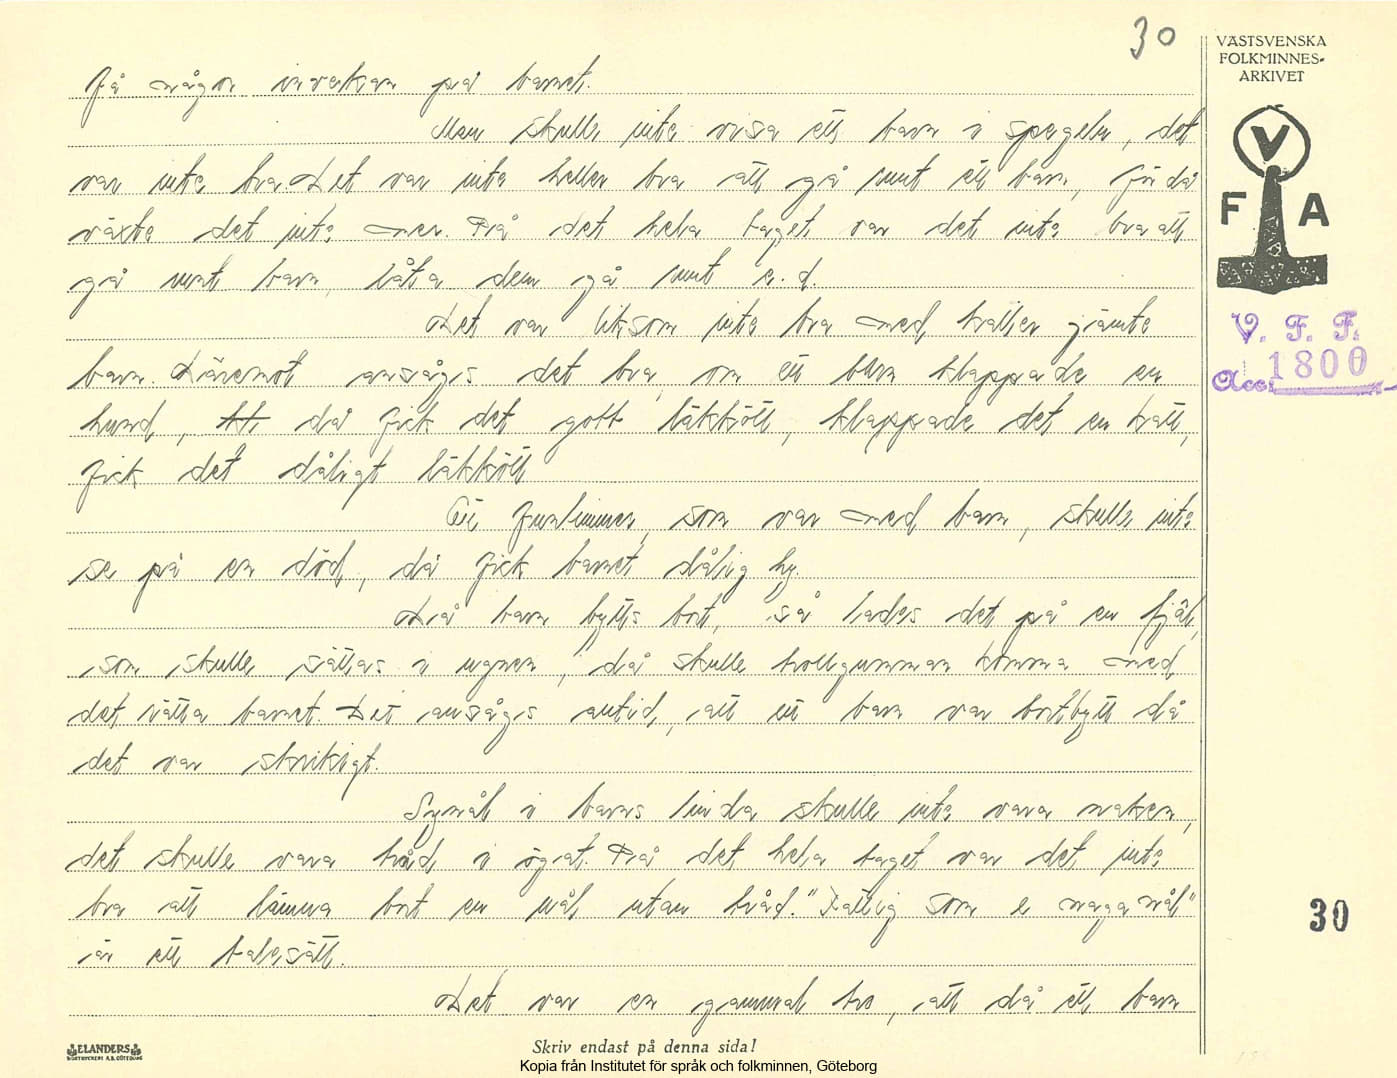 30
VÄSTSVENSKA
FOLKMINNES-
ARKIVET
få någon inverkan på barnet.
Man skulle inte visa ett barn i spegeln, det
var inte bra. Det var inte heller bra att gå runt ett barn, för då
växte det inte mer. På det hela taget var det inte bra att
gå runt barn, låta dem gå runt o. d.
V
F A
Det var liksom inte bra med katter jämte
barn. Däremot ansågs det bra, om ett barn klappade en
hund, då fick det gott läkkött, klappade det en katt,
fick det dåligt läkkött
V. F. F.
Acc. 1800
Ett fruntimmer, som var med barn, skulle inte
se på en död, då fick barnet dålig hy.
Då barn bytts bort, så lades det på en fjäl,
som skulle sättas i ugnen, då skulle trollgumman komma med
det rätta barnet. Det ansågs alltid, att ett barn var bortbytt då
det var skrikigt.
Synål i barns linda skulle inte vara naken,
det skulle vara tråd i ögat. På det hela taget var det inte
bra att lämna bort en nål utan tråd. "Fattig som e naga nål"
är ett talesätt.
30
Det var en gammal tro, att då ett barn
ELANDERS
BOKTRYCKERI A.B. GÖTEBORG
Skriv endast på denna sida!
Kopia från Institutet för språk och folkminnen, Göteborg